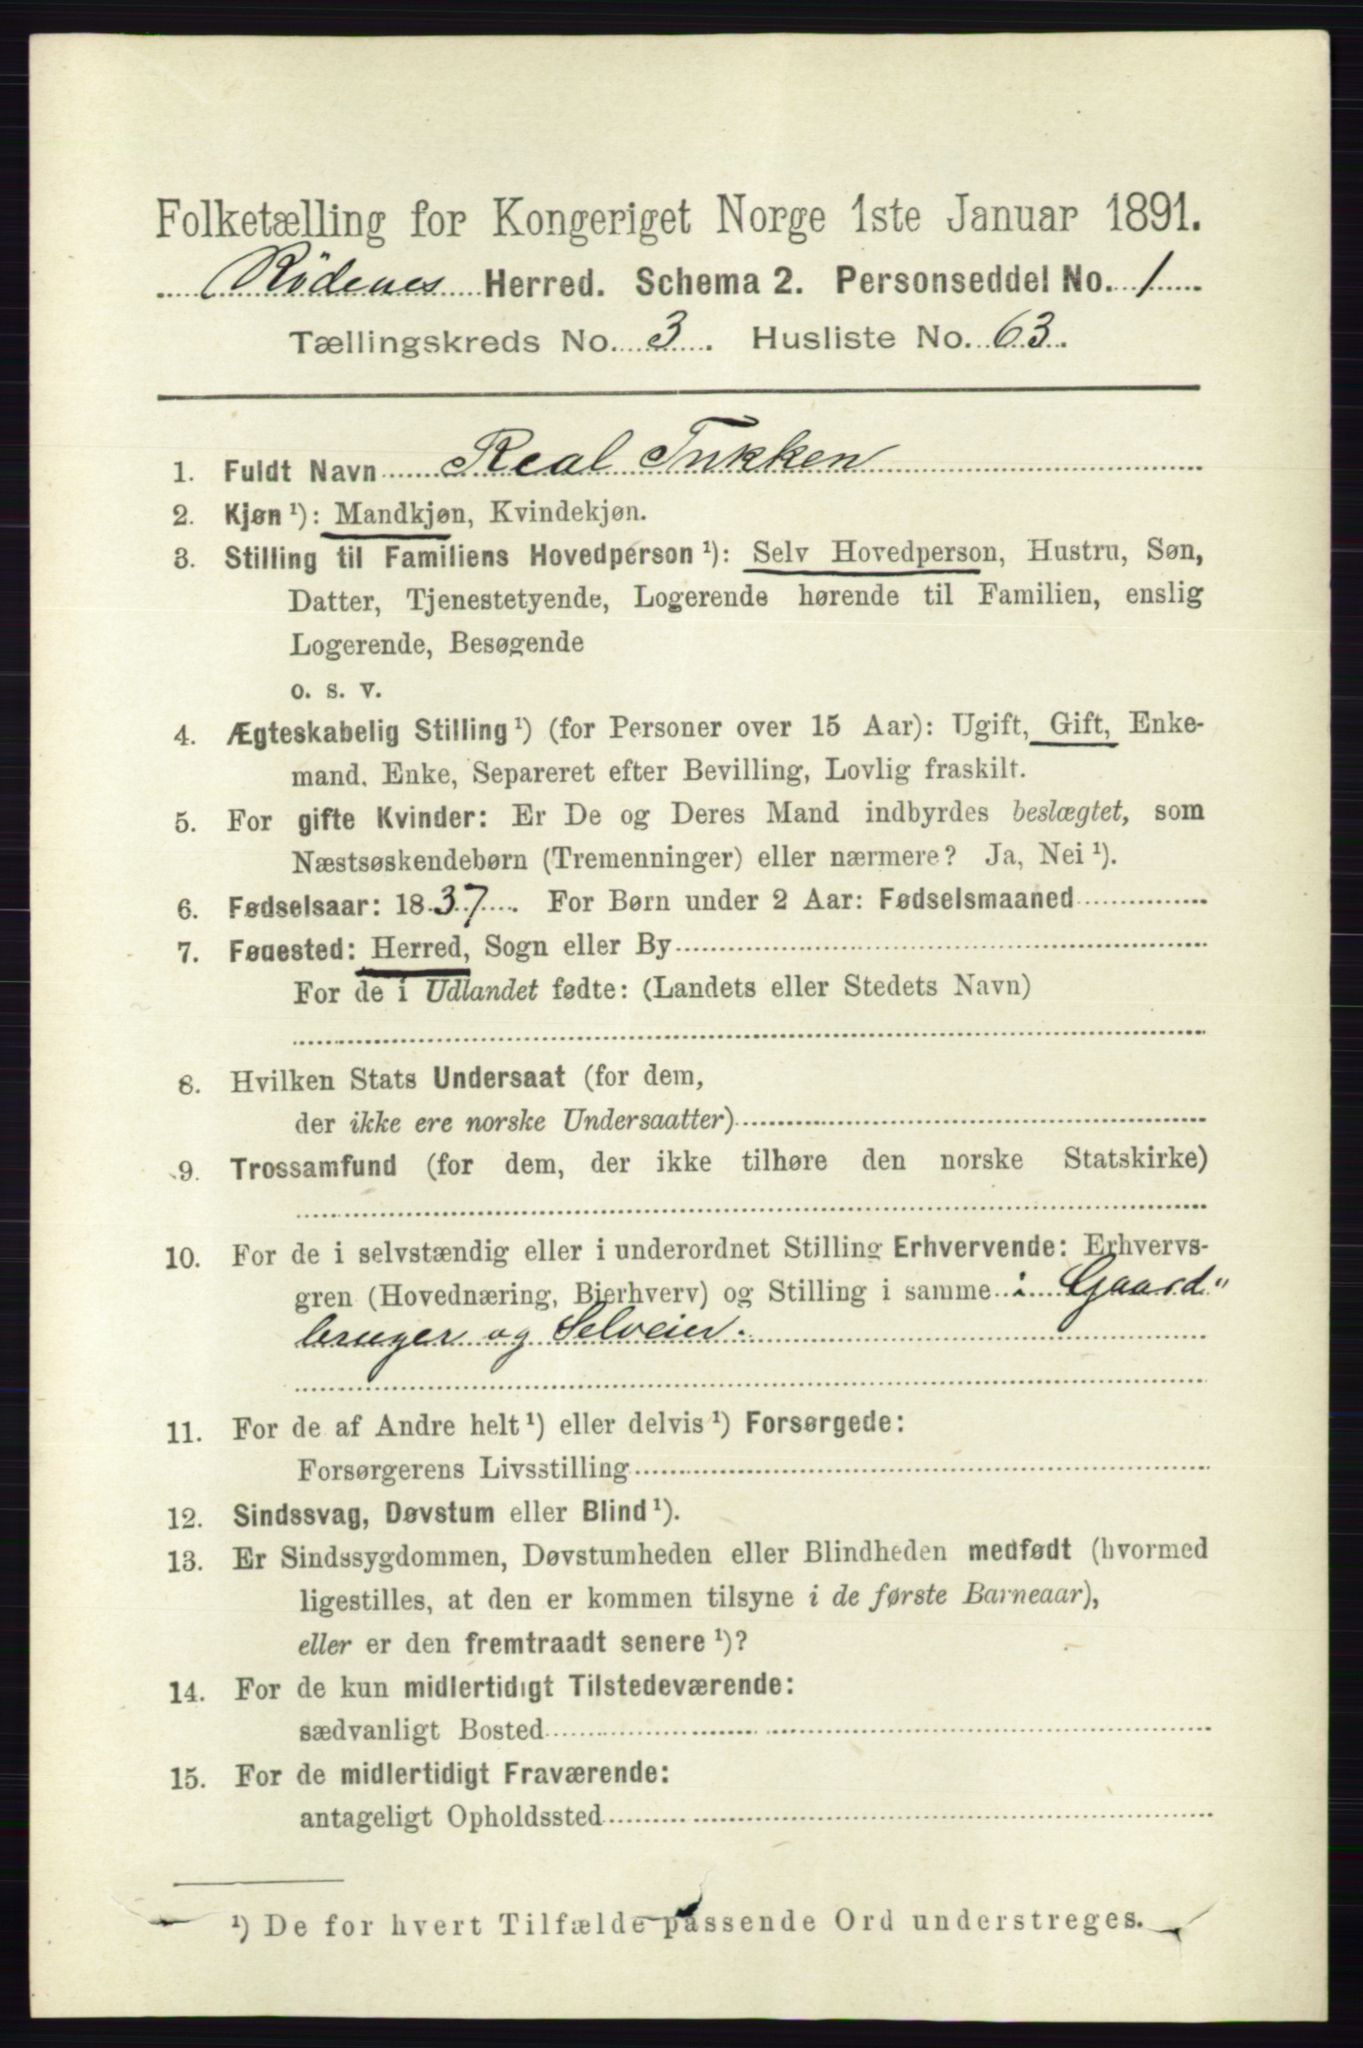 Folketælling for Kongeriget Norge 1ste Januar 1891.
Rödenes Herred. Schema 2. Personseddel No. 1
Tællingskreds No. 3. Husliste No. 63.
1. Fuldt Navn Real Tukken
2. Kjøn ¹): Mandkjøn, Kvindekjøn.
3. Stilling til Familiens Hovedperson ¹): Selv Hovedperson, Hustru, Søn,
Datter, Tjenestetyende, Logerende hørende til Familien, enslig
Logerende, Besøgende
o. s. v.
4. Ægteskabelig Stilling ¹) (for Personer over 15 Aar): Ugift, Gift, Enke-
mand, Enke, Separeret efter Bevilling, Lovlig fraskilt.
5. For gifte Kvinder: Er De og Deres Mand indbyrdes beslægtet, som
Næstsøskendebørn (Tremenninger) eller nærmere? Ja, Nei ¹).
6. Fødselsaar: 1837. For Børn under 2 Aar: Fødselsmaaned
7. Fødested: Herred, Sogn eller By
For de i Udlandet fødte: (Landets eller Stedets Navn)
8. Hvilken Stats Undersaat (for dem,
der ikke ere norske Undersaatter)
9. Trossamfund (for dem, der ikke tilhøre den norske Statskirke)
10. For de i selvstændig eller i underordnet Stilling Erhvervende: Erhvervs-
gren (Hovednæring, Bierhverv) og Stilling i samme : Gaard"
bruger og Selveier.
11. For de af Andre helt ¹) eller delvis ¹) Forsørgede:
Forsørgerens Livsstilling
12. Sindssvag, Døvstum eller Blind ¹).
13. Er Sindssygdommen, Døvstumheden eller Blindheden medfødt (hvormed
ligestilles, at den er kommen tilsyne i de første Barneaar),
eller er den fremtraadt senere ¹)?
14. For de kun midlertidigt Tilstedeværende:
sædvanligt Bosted
15. For de midlertidigt Fraværende:
antageligt Opholdssted
¹) De for hvert Tilfælde passende Ord understreges.